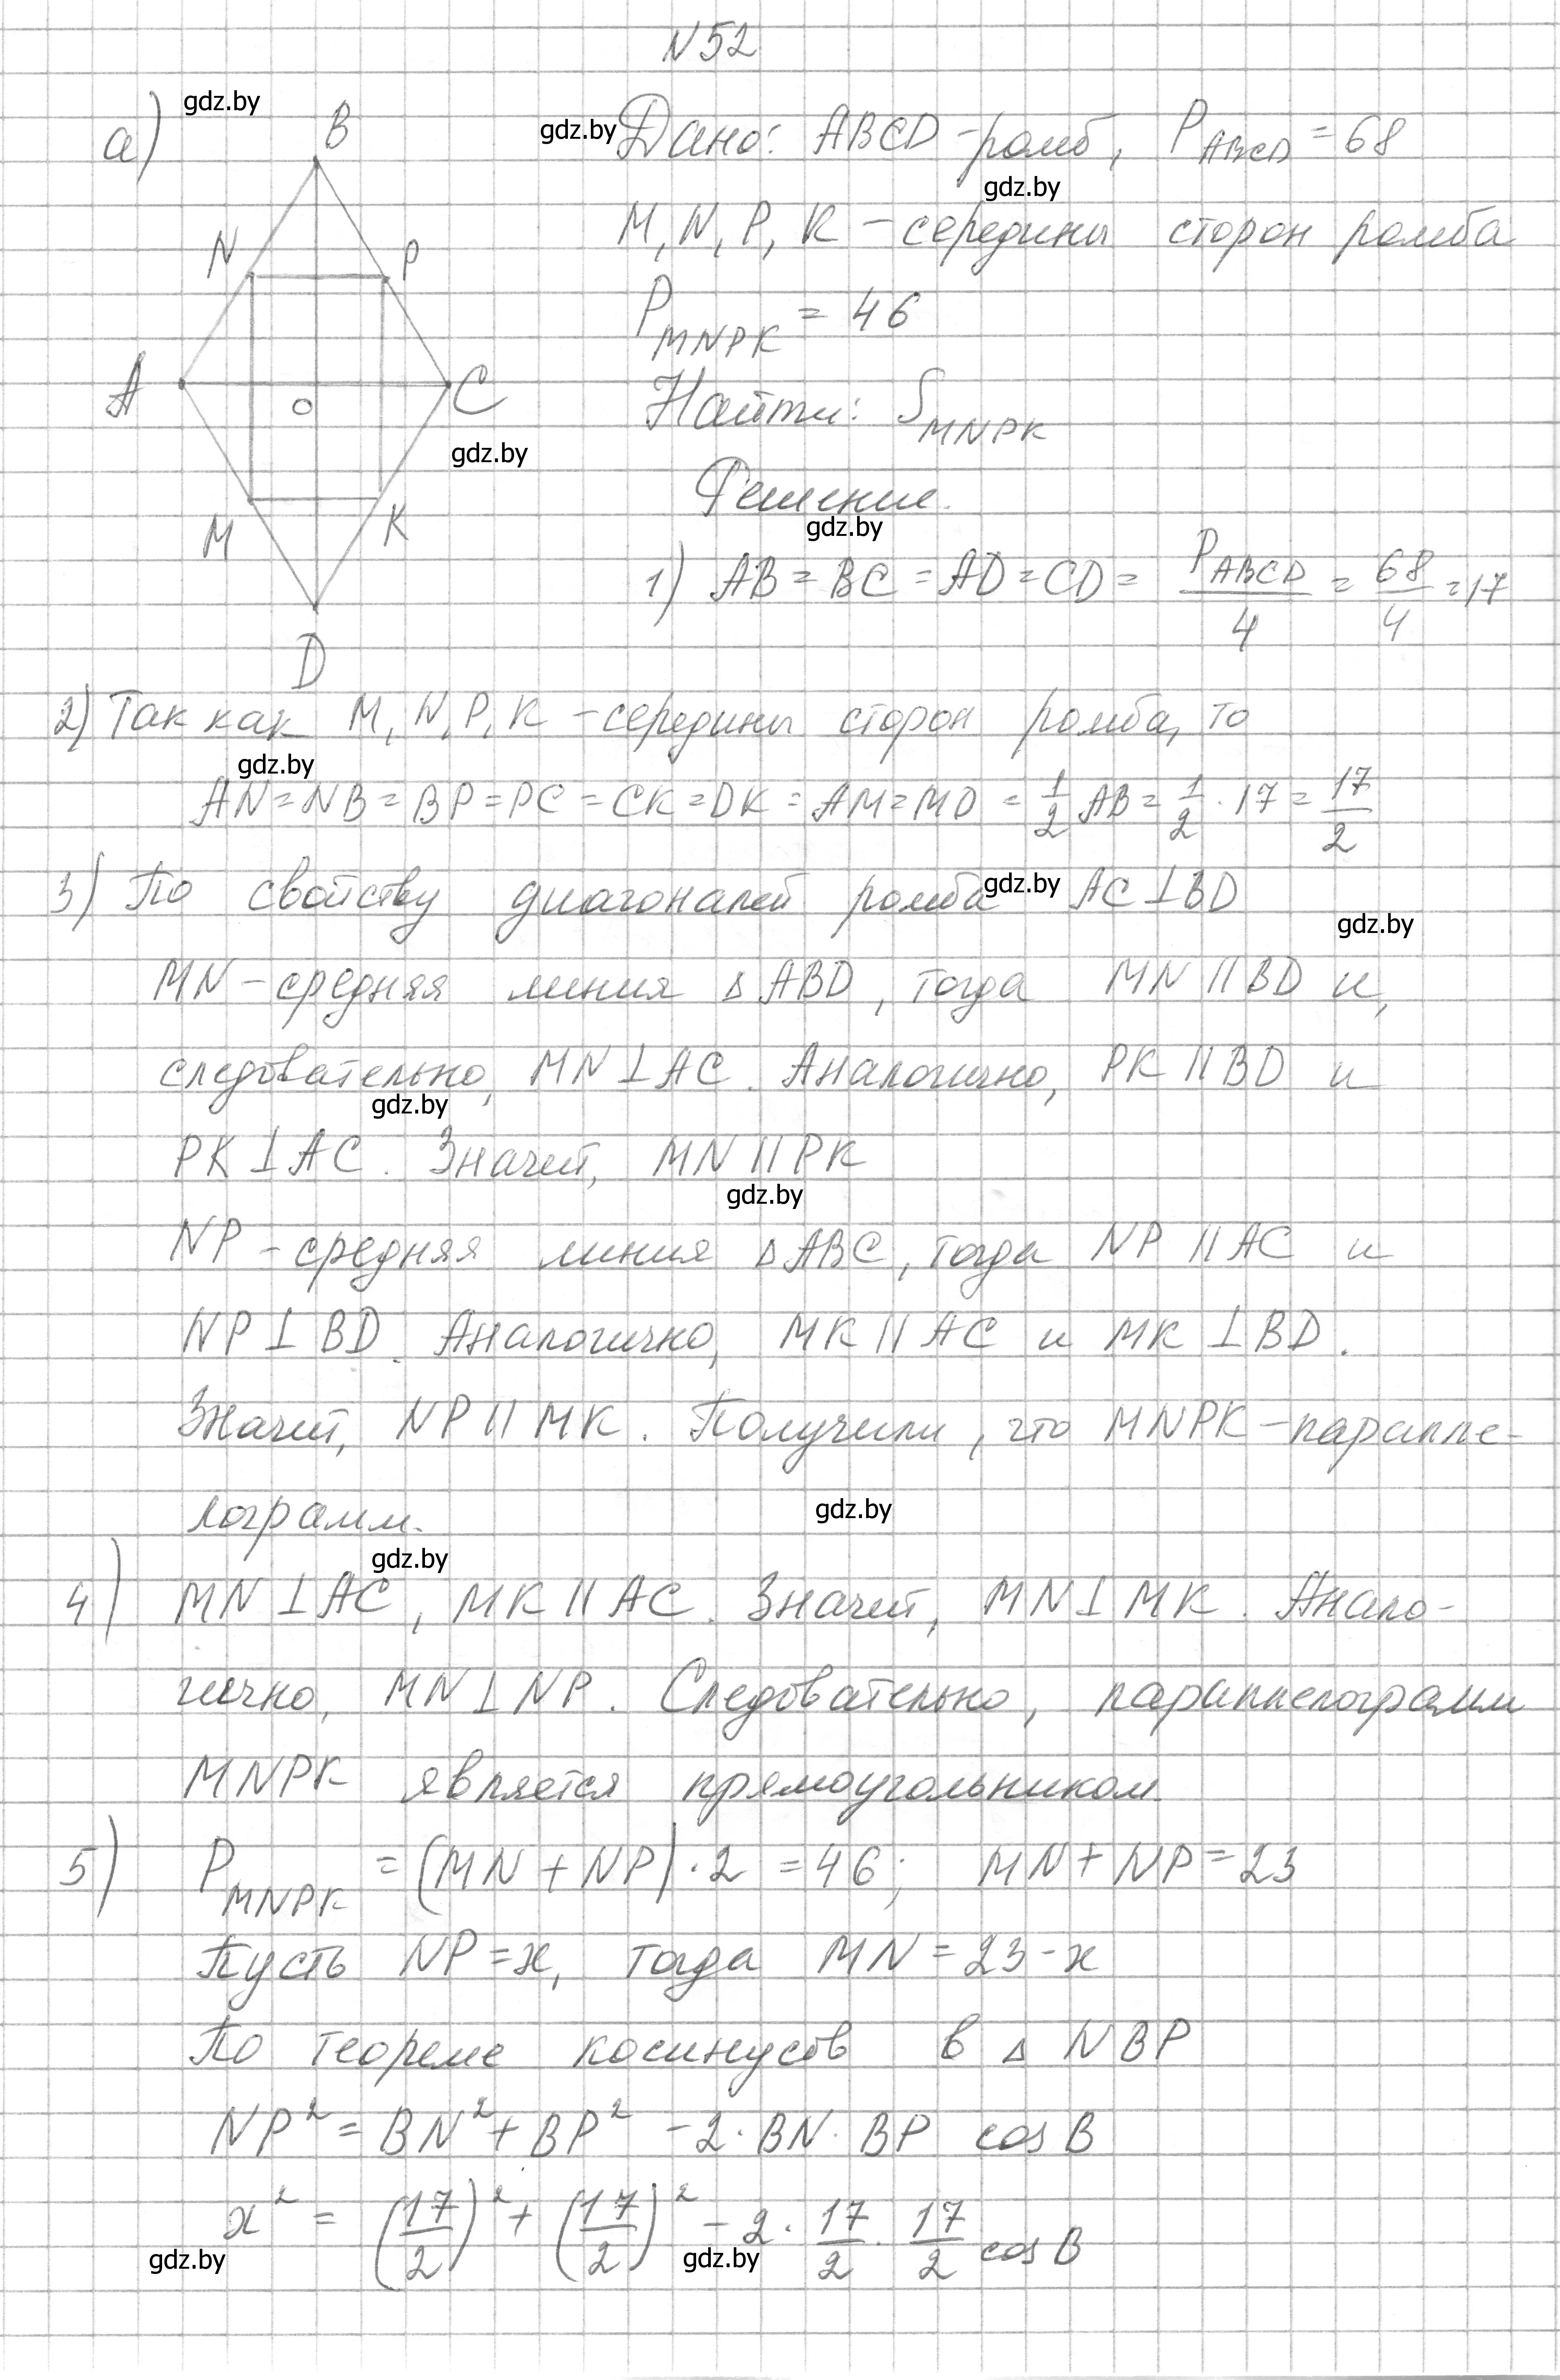 N52
а)
gdz.by
B
N
P
A
O
C
gdz.by
M
K
D
gdz.by Дано: ABCD - ромб, P_ABCD = 68
gdz.by
M, N, P, K - середины сторон ромба
P_MNPK = 46
Найти: S_MNPK
Решение.
gdz.by
1) AB = BC = AD = CD = P_ABCD/4 = 68/4 = 17
2) Так как M, N, P, K - середины сторон ромба, то
gdz.by
AN = NB = BP = PC = CK = DK = AM = MD = 1/2 AB = 1/2 · 17 = 17/2
3) По свойству диагоналей ромба gdz.by AC ⊥ BD
gdz.by
MN - средняя линия Δ ABD, тогда MN || BD и,
следовательно, MN ⊥ AC. Аналогично, PK || BD и
gdz.by
PK ⊥ AC. Значит, MN || PK
gdz.by
NP - средняя линия Δ ABC, тогда NP || AC и
NP ⊥ BD. Аналогично, MK || AC и MK ⊥ BD.
Значит, NP || MK. Получили, что MNPK - паралле-
лограмм.
gdz.by
gdz.by
4) MN ⊥ AC, MK || AC. Значит, MN ⊥ MK. Анало-
гично, MN ⊥ NP. Следовательно, параллелограмм
MNPK является прямоугольником.
5) P_MNPK = (MN + NP) · 2 = 46; MN + NP = 23
Пусть NP = x, тогда MN = 23 - x
По теореме косинусов в Δ NBP
NP² = BN² + BP² - 2 · BN · BP cos B
x² = (17/2)² + (17/2)² - 2 · 17/2 · 17/2 cos B
gdz.by
gdz.by